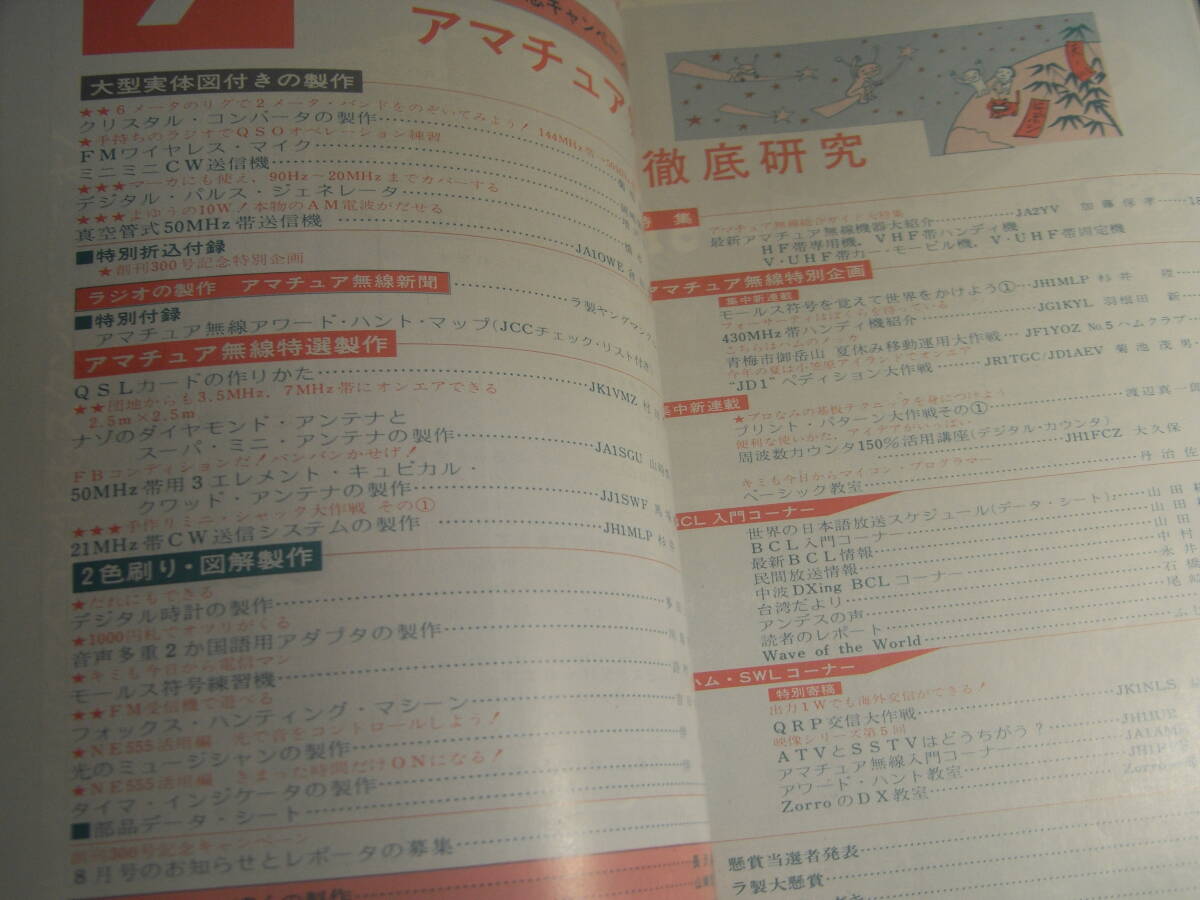 7
アマチュア
大型実体図付きの製作
★★6メータのリグで2メータ・バンドをのぞいてみよう! 144MHz帯→50MHz
クリスタル・コンバータの製作
★手持ちのラジオでQSOオペレーション練習
FMワイヤレス・マイク
ミニミニCW送信機
★★★マーカにも使え,90Hz~20MHzまでカバーする
デジタル・パルス・ジェネレータ
★★★よゆうの10W!本物のAM電波がだせる
真空管式50MHz帯送信機 JA1OWE
■特別折込付録
★創刊300号記念特別企画
ラジオの製作 アマチュア無線新聞 ラ製ヤング
■特別付録
アマチュア無線アワード・ハント・マップ(JCCチェック・リスト付き
アマチュア無線特選製作
QSLカードの作りかた JK1VMZ 村
★★団地からも3.5MHz,7MHz帯にオンエアできる
2.5m×2.5m
ナゾのダイヤモンド・アンテナと
スーパ・ミニ・アンテナの製作 JA1SGU 山
FBコンディションだ!バンバンかせげ!
50MHz帯用3エレメント・キュビカル・
クワッド・アンテナの製作 JJ1SWF
★★★手作りミニ・シャック大作戦 その①
21MHz帯CW送信システムの製作 JH1MLP 杉井
2色刷り・図解製作
★だれにもできる
デジタル時計の製作
★1000円札でオツリがくる
音声多重2か国語用アダプタの製作
★キミも今日から電信マン
モールス符号練習機
★★FM受信機で遊べる
フォックス・ハンティング・マシーン
★NE555活用編 光で音をコントロールしよう!
光のミュージシャンの製作
★NE555活用編 きまった時間だけONになる!
タイマ・インジケータの製作
■部品データ・シート
創刊300号記念キャンペーン
8月号のお知らせとレポータの募集
の製作
徹底研究
特集
アマチュア無線総合ガイド大特集
最新アマチュア無線機器大紹介 JA2YV 加藤保孝 18
HF帯専用機,VHF帯ハンディ機
V・UHF帯カー・モービル機,V・UHF帯固定機
アマチュア無線特別企画
集中新連載
モールス符号を覚えて世界をかけよう① JH1MLP 杉井
フォーサーティはぼくらを待っている
430MHz帯ハンディ機紹介 JG1KYL 羽根田 新
こちらはハムのメッカ
青梅市御岳山 夏休み移動運用大作戦 JF1YOZ No.5ハムクラブ
今年の夏は小笠原アイランドでオンエア
“JD1”ペディション大作戦 JR1TGC/JD1AEV 菊池茂男
集中新連載
★プロなみの基板テクニックを身につけよう
プリント・パターン大作戦その① 渡辺真一
便利な使いかた,アイデアがいっぱい
周波数カウンタ150%活用講座(デジタル・カウンタ) JH1FCZ 大久保
キミも今日からマイコン・プログラマー
ベーシック教室 丹治佐
BCL入門コーナー
世界の日本語放送スケジュール(データ・シート) 山田
BCL入門コーナー 山田
最新BCL情報 山田
民間放送情報 中村
中波DXing BCLコーナー 永井
台湾だより 石橋
アンデスの声 尾
読者のレポート
Wave of the World
ハム・SWLコーナー
特別寄稿
出力1Wでも海外交信ができる!
QRP交信大作戦 JK1NLS
映像シリーズ第5回
ATVとSSTVはどうちがう? JH1JUE
アマチュア無線入門コーナー
アワード・ハント教室
ZorroのDX教室 Zorro
懸賞当選者発表
ラ製大懸賞